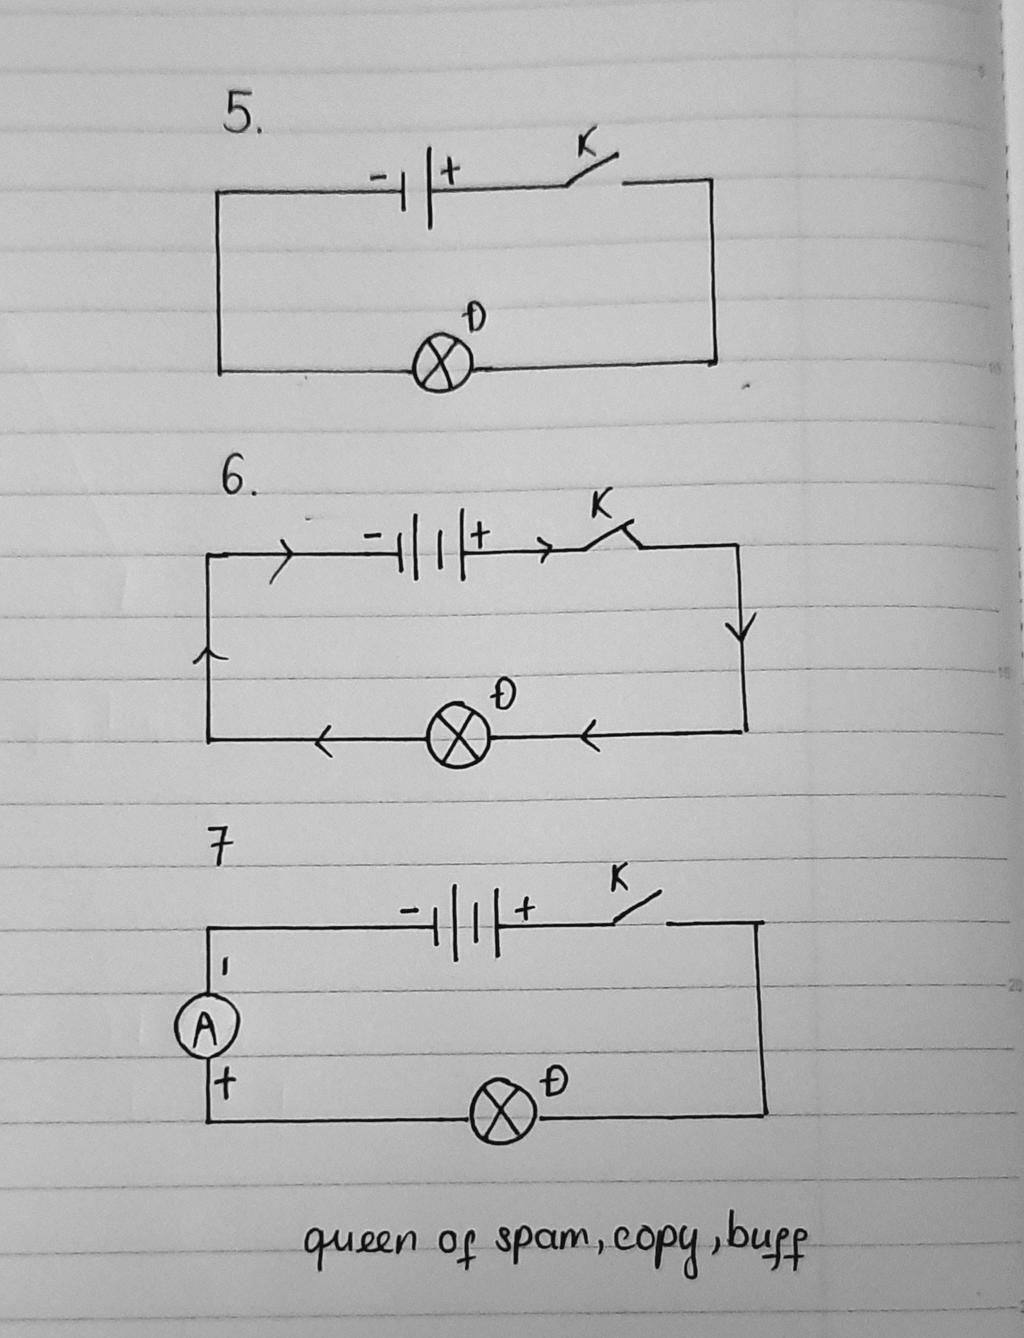 5.
- + K
Đ
6.
- + K
Đ
7
- + K
-
A
+
Đ
queen of spam, copy, buff